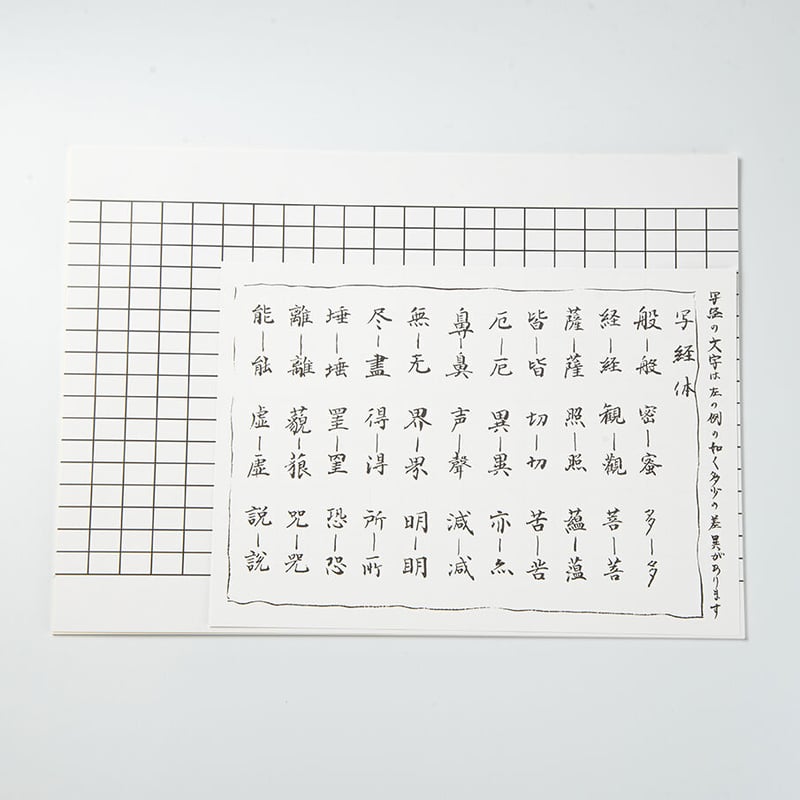 写経の文字は左の例の如く多少の差異があります
写経体
般―般 密―蜜 多―多
経―経 観―觀 菩―菩
薩―薩 照―照 蘊―薀
皆―皆 切―切 苦―苦
厄―厄 異―異 亦―亦
鼻―鼻 声―聲 減―減
無―无 界―界 明―明
尽―盡 得―得 所―所
埵―埵 罣―罣 恐―恐
離―離 藐―藐 咒―咒
能―能 虚―虚 説―説